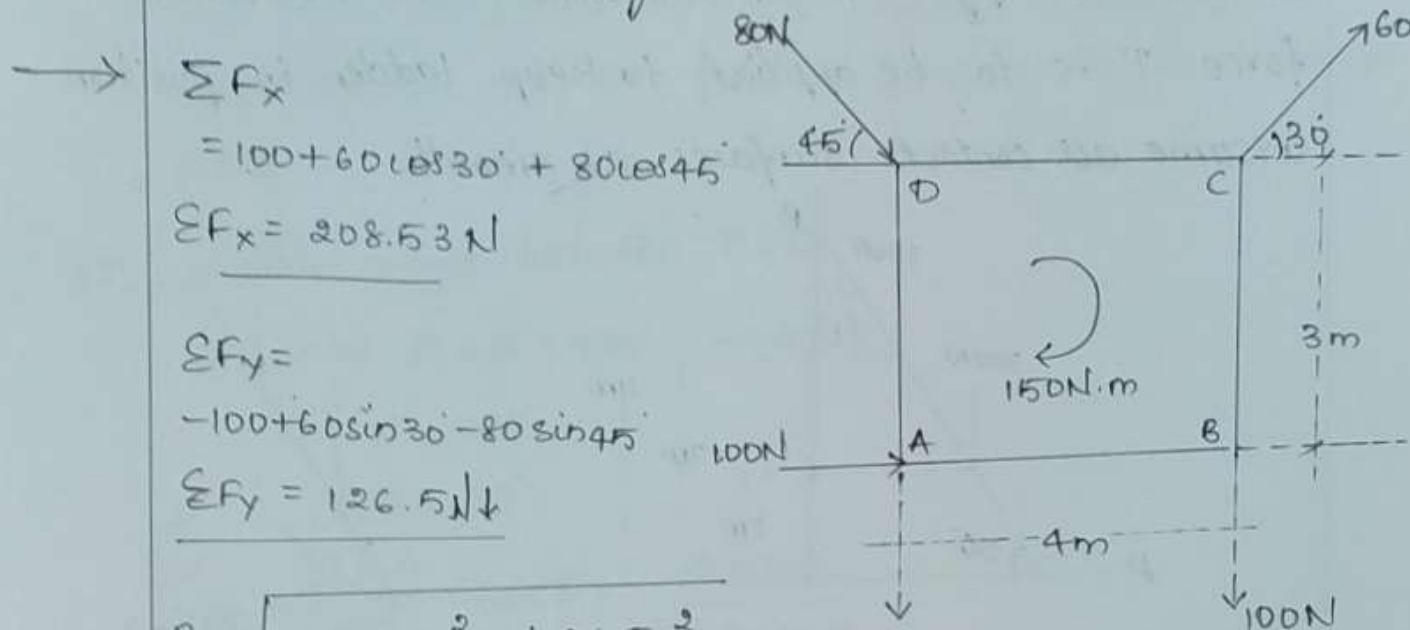 ΣFx
=100+60cos30°+80cos45°
ΣFx= 208.53N
ΣFy=
-100+60sin30°-80sin45°
ΣFy = 126.5N↓
2 2
80N
60
45°
30°
D
C
150N.m
3m
100N
A
B
4m
100N